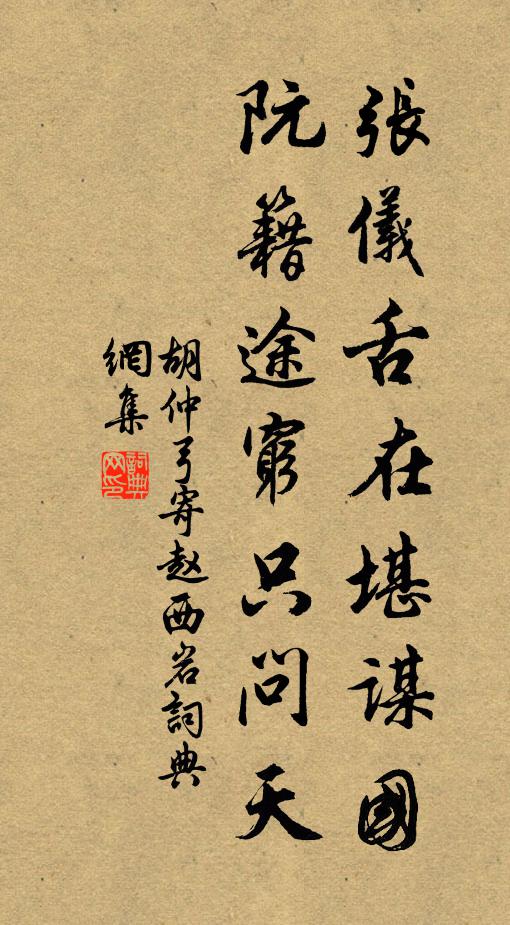 張儀舌在堪謀國
阮籍途窮只問天
胡仲弓寄赵西岩詞典
網集
詞典
网印